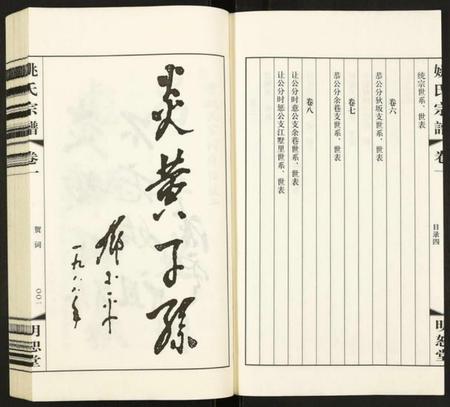 统宗世系、世表
卷六
恭公分狄坂支世系、世表
卷七
恭公分余巷支世系、世表
卷八
让公分时意公支余巷世系、世表
让公分时惩公支江墅里世系、世表
姚氏宗谱
卷一
目录四
明恕堂
炎黄子孙
邓小平
一九八八年
姚氏宗谱
卷一
贺词
〇〇一
明恕堂